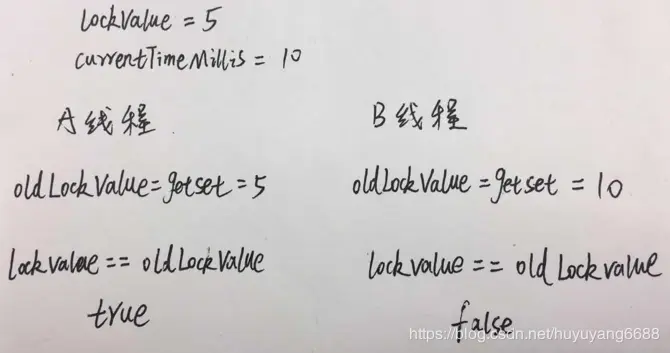 lockValue = 5
currentTimeMillis = 10
A线程
B线程
oldLockValue=getset=5
oldLockValue=getset=10
lockvalue== oldLockValue
lockvalue == oldLockvalue
true
false
https://blog.csdn.net/huyuyang6688